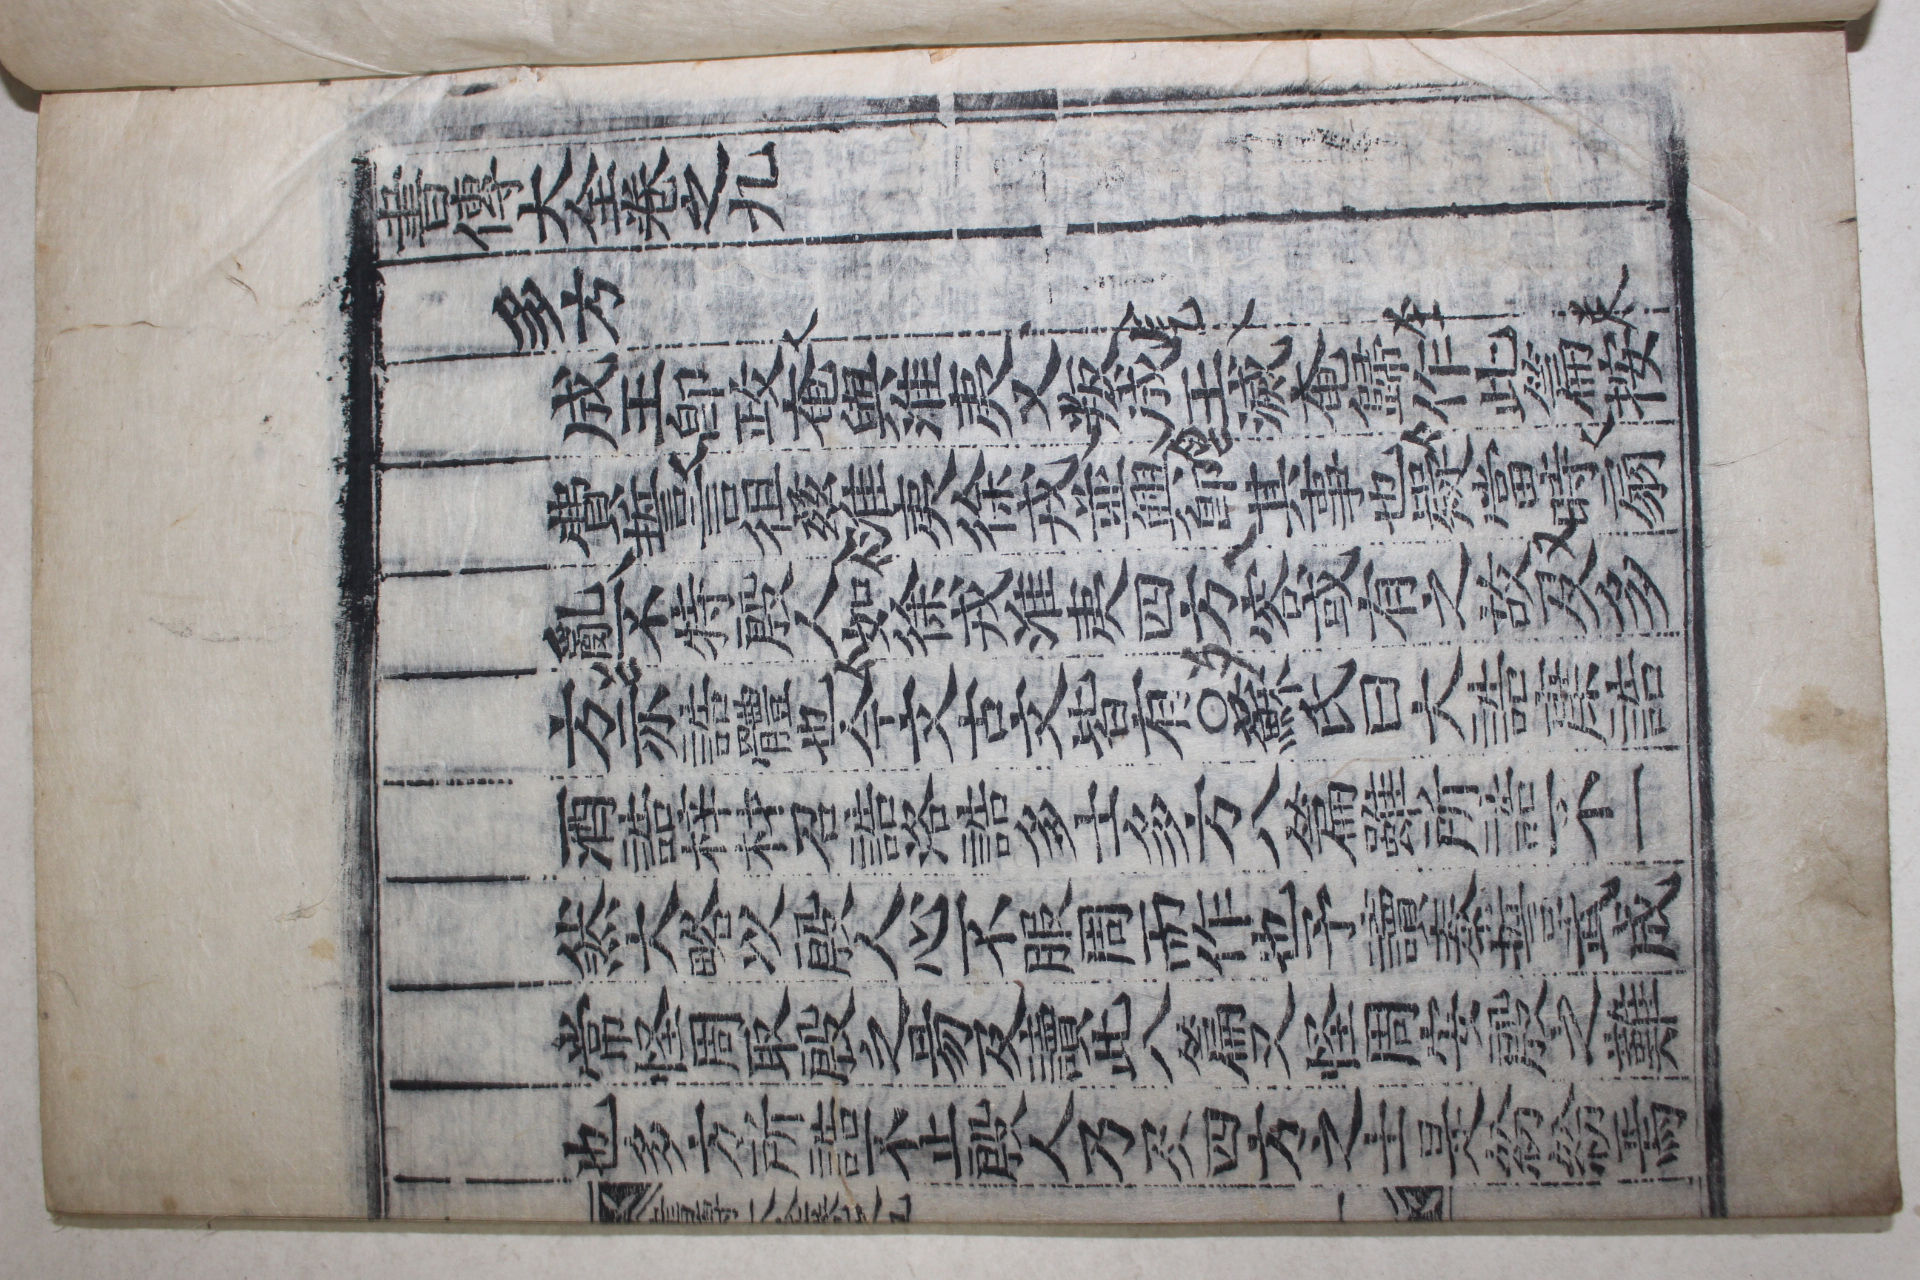 書傳大全卷之九
多方
成王即政奄與淮夷又叛成王滅奄歸作此篇按
費誓言徂玆淮夷徐戎並興卽其事也疑當時扇
亂不特殷人如徐戎淮夷四方容或有之故及多
方亦誥體也今文古文皆有○蘇氏曰大誥康誥
酒誥梓材召誥洛誥多士多方八篇雖所誥不一
然大略以殷人心不服周而作也予讀泰誓武成
常怪周取殷之易及讀此八篇又怪周安殷之難
也多方所誥不止殷人乃及四方之士是紛紛焉
書傳大全卷九